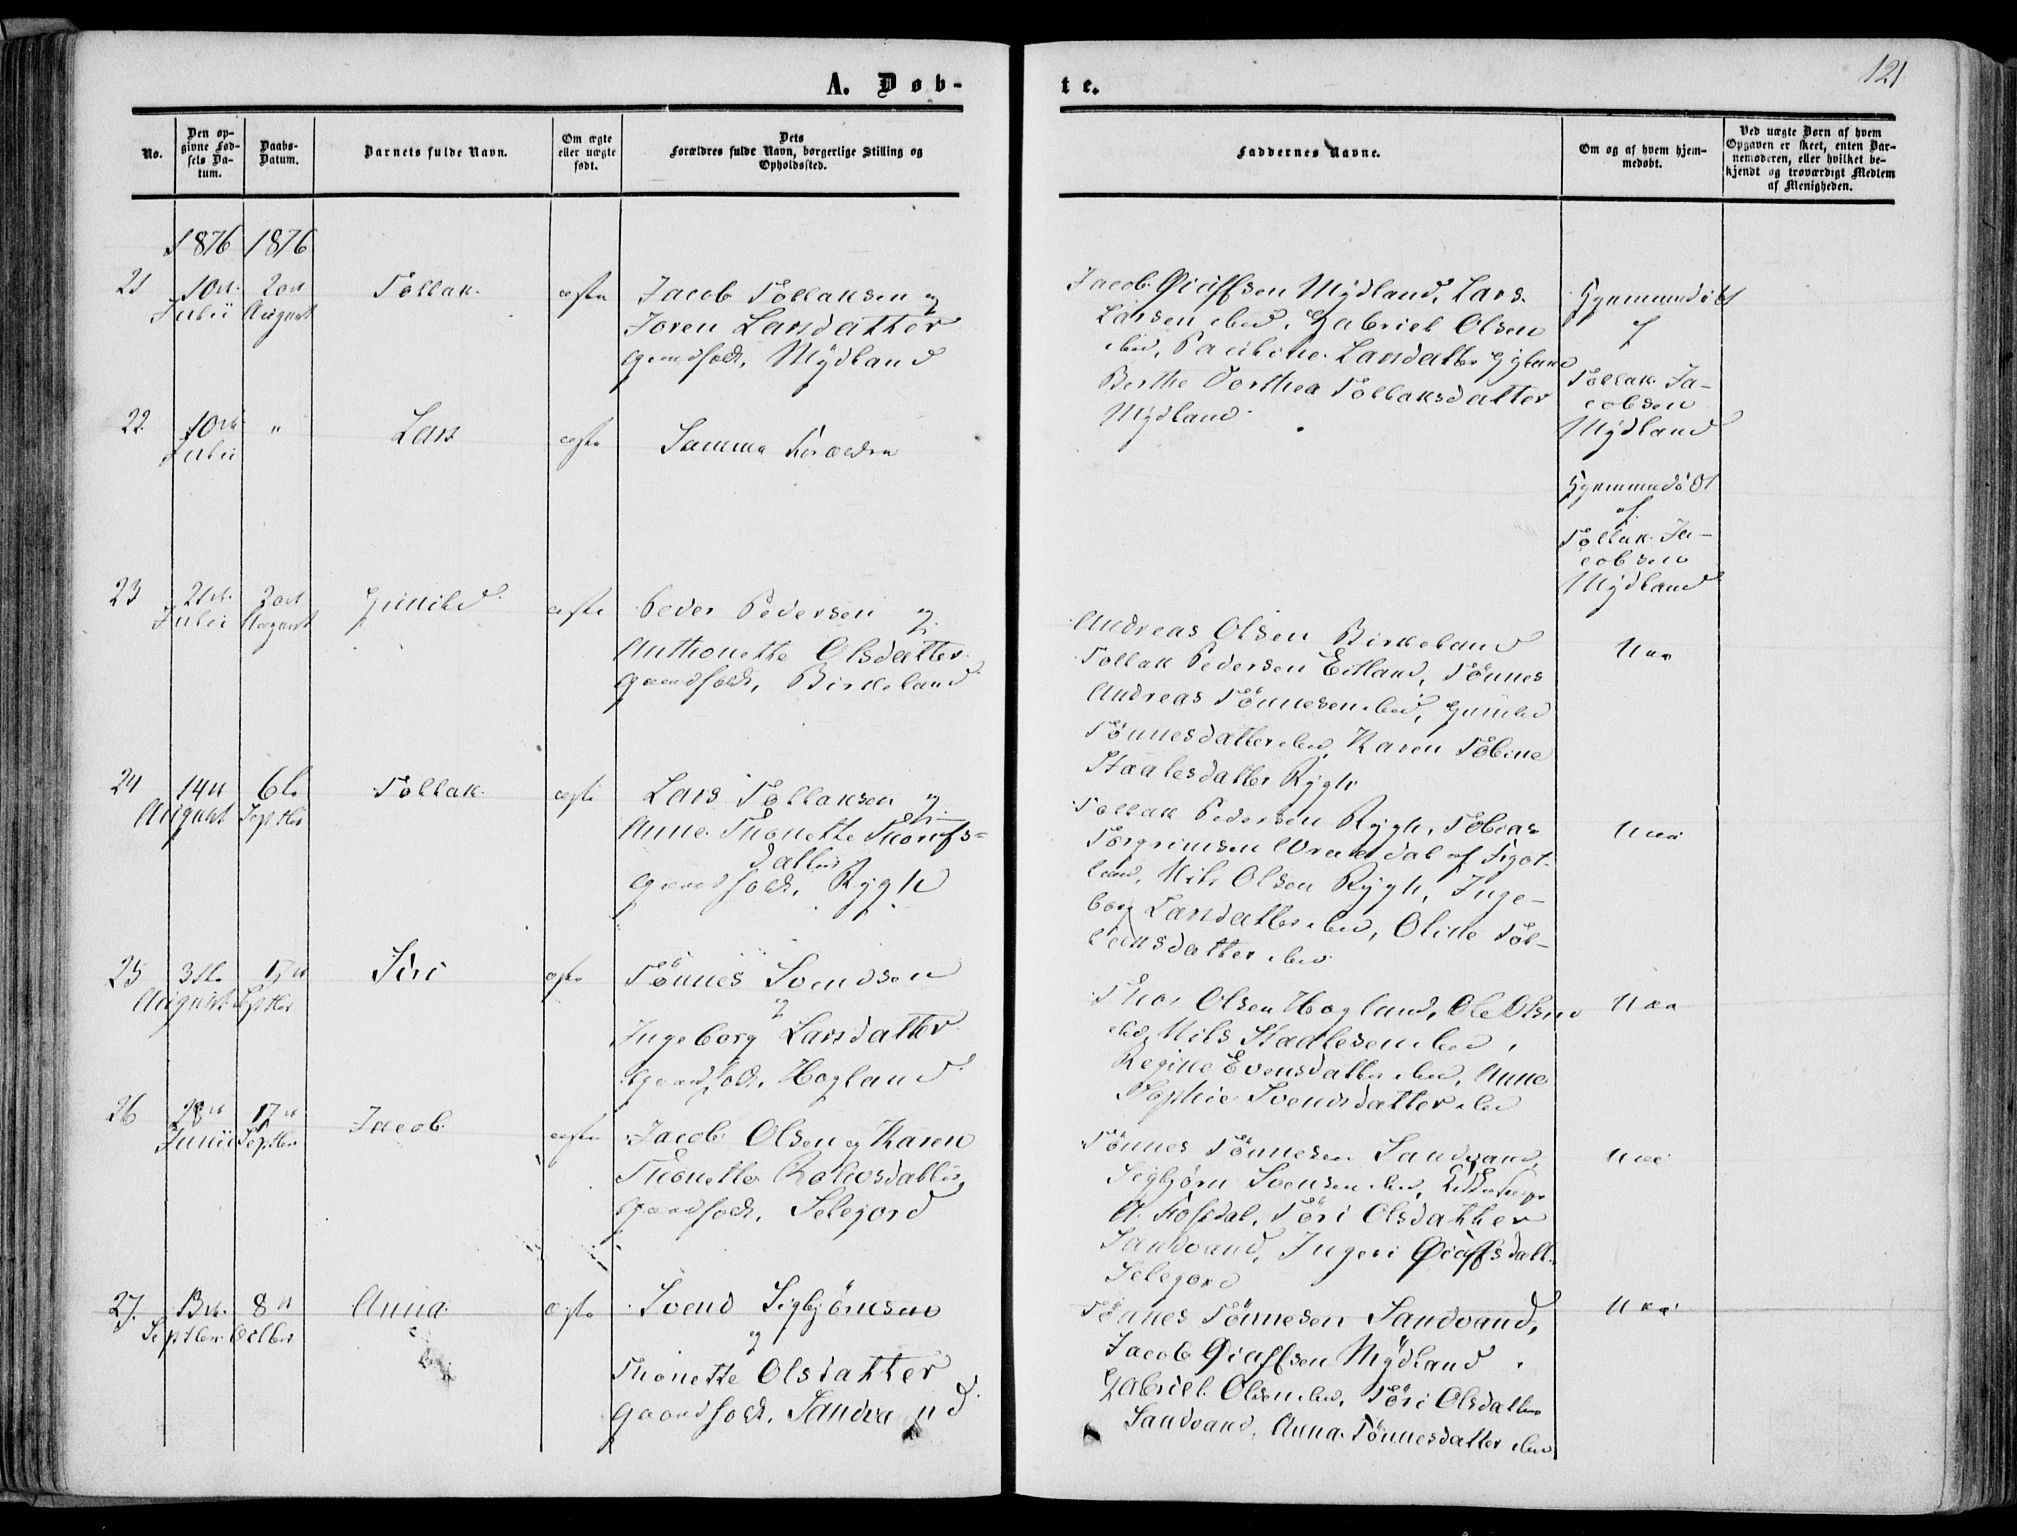 A. Døb-
te.
121
No.
Den op-
givne Fød-
sels Da-
tum.
Daabs-
Datum.
Barnets fulde Navn.
Om ægte
eller uægte
født.
Dets
Forældres fulde Navn, borgerlige Stilling og
Opholdssted.
Faddernes Navne.
Om og af hvem hjem-
medøbt.
Ved uægte Børn af hvem
Opgaven er skeet, enten Bar-
nemoderen, eller hvilket be-
kjendt og troværdigt Medlem
af Menigheden.
1876 1876
21 10de 20de Tollak ægte Jacob Tollaksen og
Julii August Joren Larsdatter
Gaardfolk, Mydland
Jacob Øiaffsen Mydland, Lars
Larsen ibid, Gabriel Olsen
ibid, Larsdatter
Berthe Dorthea Tollaksdatter
Mydland
Hjemmedøbt
af
Tollak Ja-
cobsen
Mydland
22 10de " Lars ægte Samme Forældre
Julii
Hjemmedøbt
af
Tollak Ja-
cobsen
Mydland
23 21de 20de Gunild ægte Peder Pedersen og
Julii August Anthonette Olsdatter
Gaardfolk, Birkeland
Andreas Olsen Birkeland
Tollak Pedersen Eitland, Tönnes
Andreas Tönnesen ibid, Gunild
Tönnesdatter ibid, Karen Tobine
Staalesdatter Rygh
Nei
24 14de 6te Tollak ægte Lars Tollaksen og
August Septber Anne Thonette
datter
Gaardfolk, Rygh
Tollak Pedersen Rygh, Tobias
Torgrimsen af
land, Nils Olsen Rygh, Inge-
borg Larsdatter ibid, Oline Tol-
laksdatter ibid
Nei
25 31te 17de Siri ægte Tönnes Svendsen
August Septber og
Ingeborg Larsdatter
Gaardfolk, Hogland
Thor Olsen Hogland, Ole Olsen
ibid, Nils Staalesen ibid,
Regine Evensdatter ibid, Anne
Sophie Svendsdatter ibid
Nei
26 28de 17de Jacob ægte Jacob Olsen og Karen
Junii Septber Thonette
Gaardfolk, Selegord
Tönnes Tönnesen Sandvand,
Sigbjörn Svensen ibid,
A. Töri Olsdatter
Sandvand, Ingeri Øiaffsdatt.
Selegord
Nei
27. 13de 8de Anna ægte Svend Sigbjörnsen
Septber Octber og
Thonette Olsdatter
Gaardfolk, Sandvand
Tönnes Tönnesen Sandvand,
Jacob Øiaffsen Mydland,
Gabriel Olsen ibid, Töri Olsdatter
Sandvand, Anna Tönnesdatter ibid
Nei